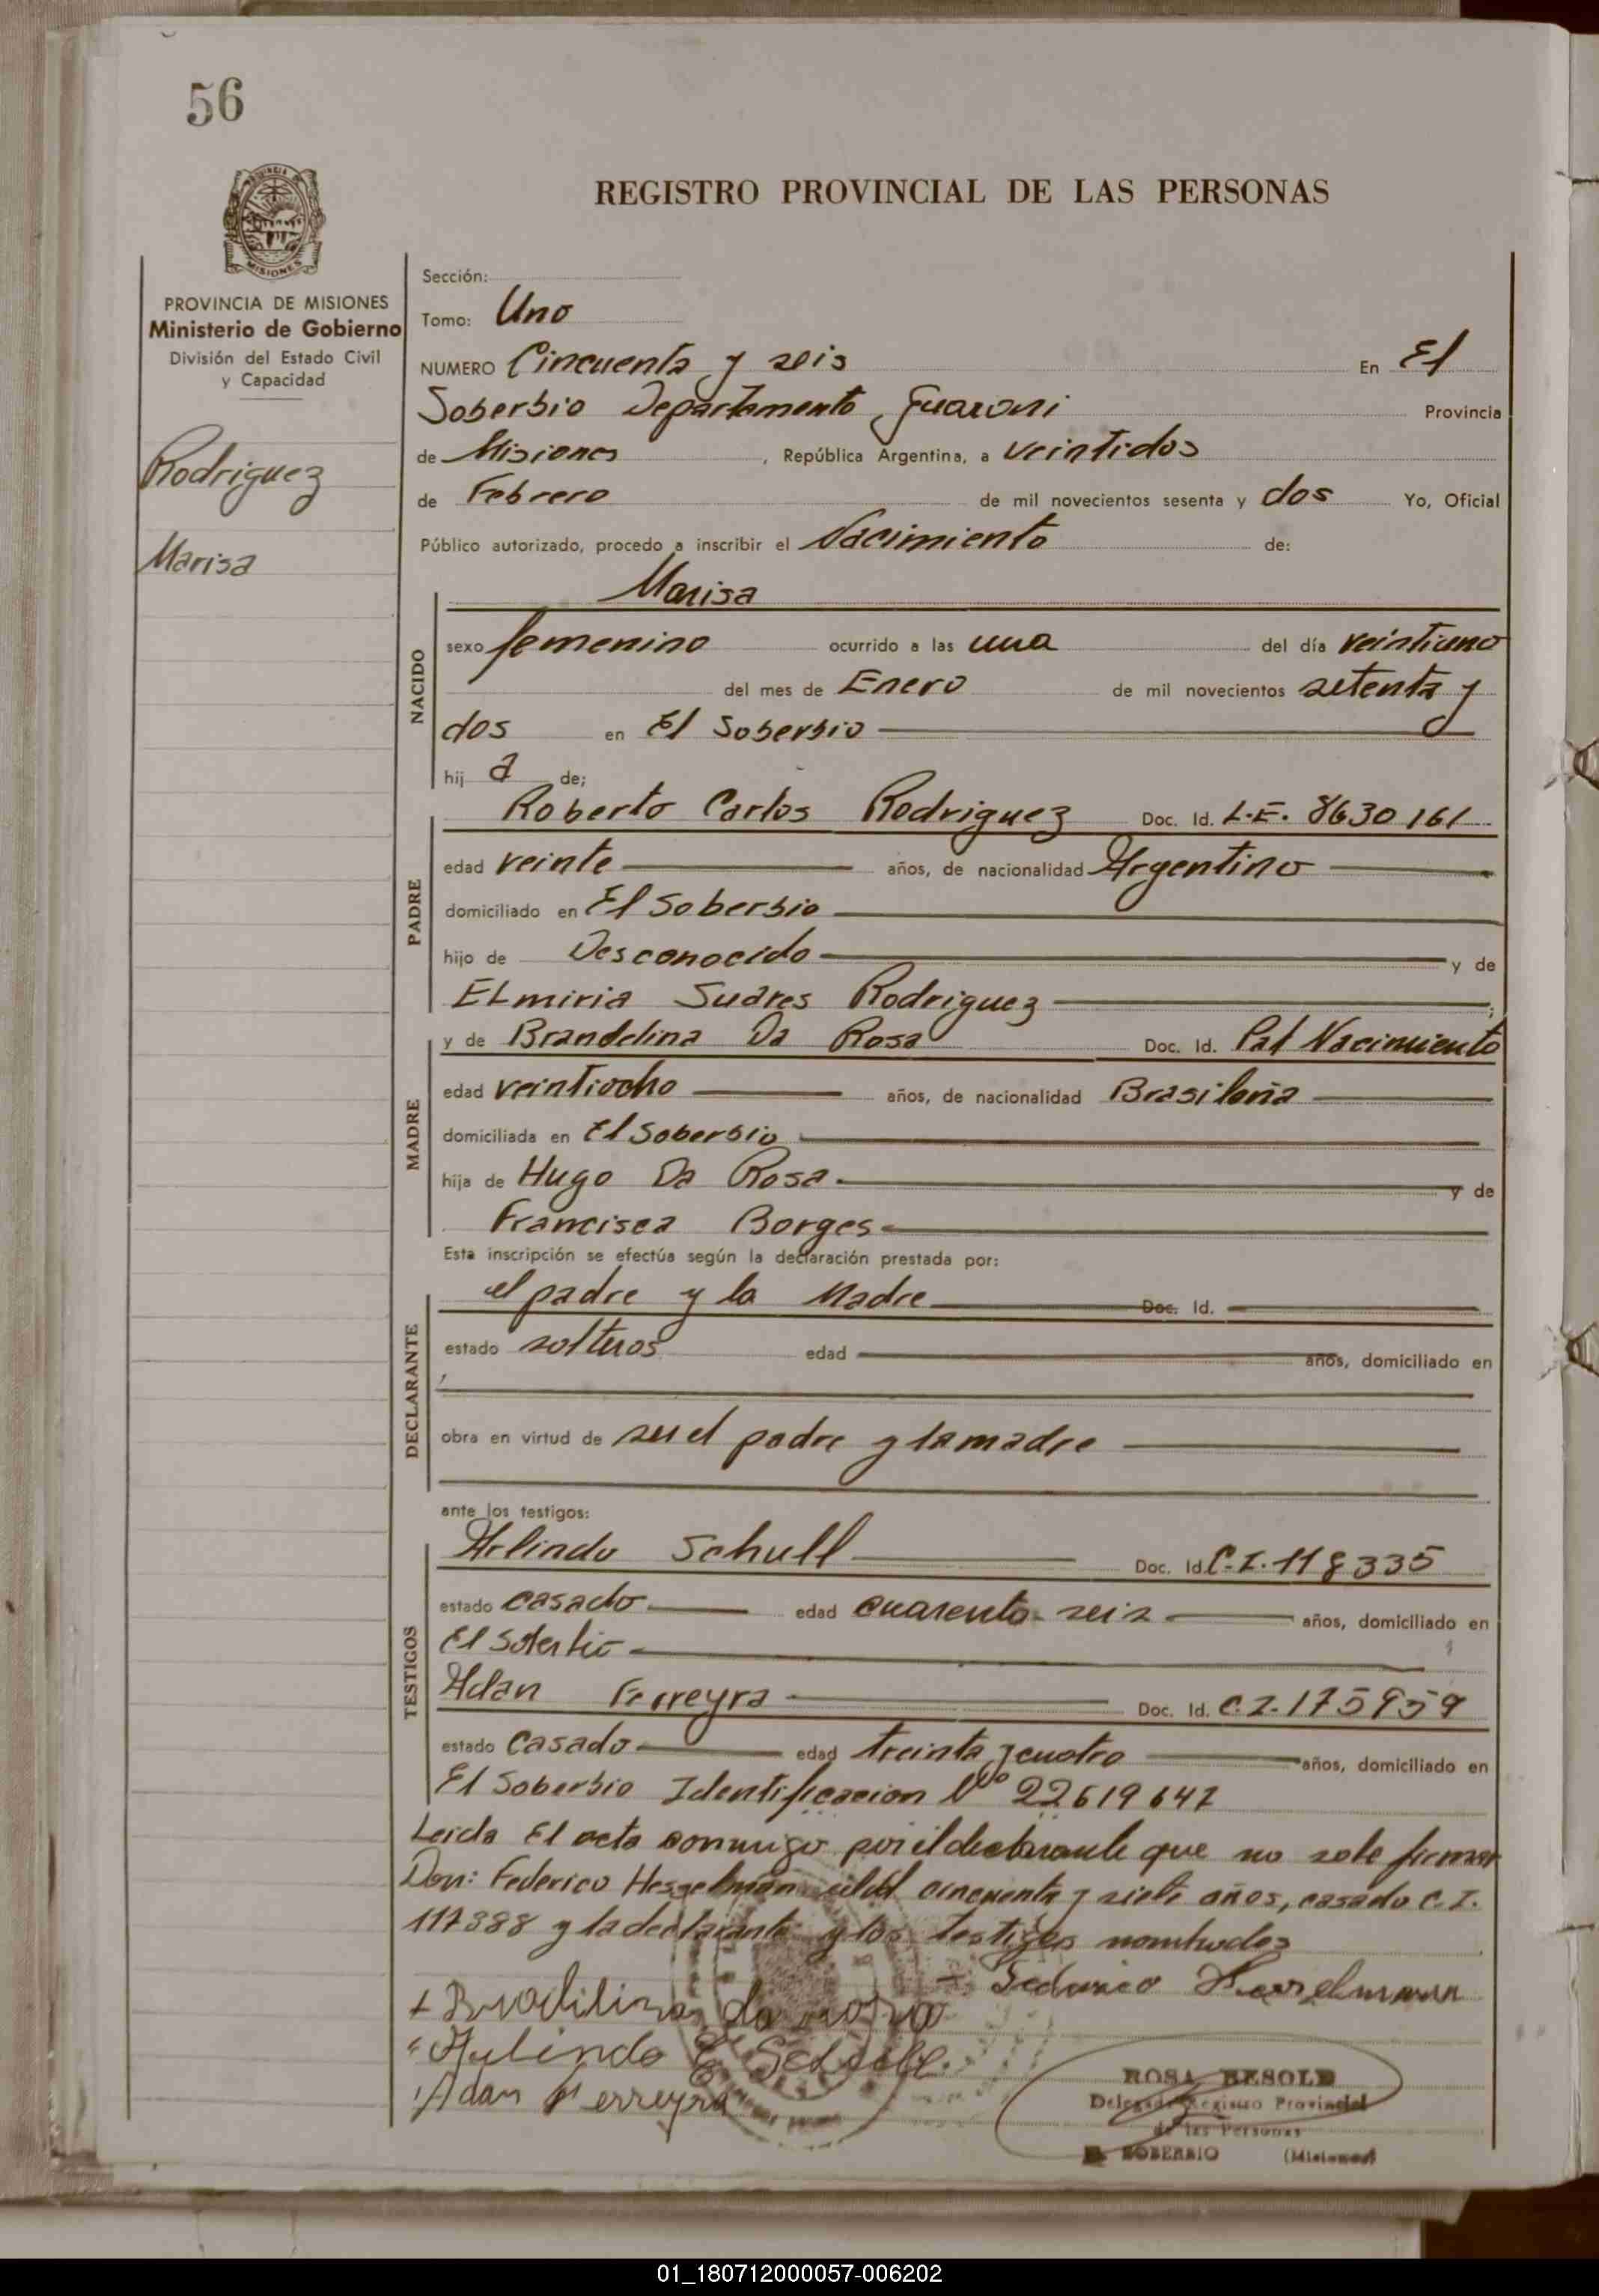 56
REGISTRO PROVINCIAL DE LAS PERSONAS
MISIONES
PROVINCIA DE MISIONES
Ministerio de Gobierno
División del Estado Civil
y Capacidad
Rodriguez
Marisa
Sección:
Tomo: Uno
NUMERO Cincuenta y seis En El
Soberbio Departamento Guarani Provincia
de Misiones, República Argentina, a veintidos
de Febrero de mil novecientos sesenta y dos Yo, Oficial
Público autorizado, procedo a inscribir el Nacimiento de:
Marisa
NACIDO
sexo femenino ocurrido a las una del día veintiuno
del mes de Enero de mil novecientos setenta y
dos en El Soberbio
hij a de;
PADRE
Roberto Carlos Rodriguez Doc. Id. L.E. 8630161
edad veinte años, de nacionalidad Argentino
domiciliado en El Soberbio
hijo de Desconocido y de
Elmiria Suares Rodriguez ;
MADRE
y de Brandelina Da Rosa Doc. Id. Pat Nacimiento
edad veintiocho años, de nacionalidad Brasileña
domiciliada en El Soberbio
hija de Hugo Da Rosa y de
Francisca Borges
Esta inscripción se efectúa según la declaración prestada por:
DECLARANTE
el padre y la Madre Doc. Id.
estado solteros edad años, domiciliado en
obra en virtud de ser el padre y la madre
ante los testigos:
TESTIGOS
Arlindo Schull Doc. Id. C.I. 118335
estado casado edad cuarenta seis años, domiciliado en
El Soberbio
Adan Ferreyra Doc. Id. C.I. 175959
estado Casado edad treinta y cuatro años, domiciliado en
El Soberbio Identificacion Nº 22619647
Leida El acta conmigo por el declarante que no sabe firmar
Don: Federico Hesselmann cincuenta y siete años, casado C.I.
117388 y la declarante y los testigos nombrados
Federico Hesselmann
da rosa
Arlindo E Schull
Adan Ferreyra
ROSA BESOLD
Delegada Registro Provincial
de las Personas
EL SOBERBIO (Misiones)
01_180712000057-006202